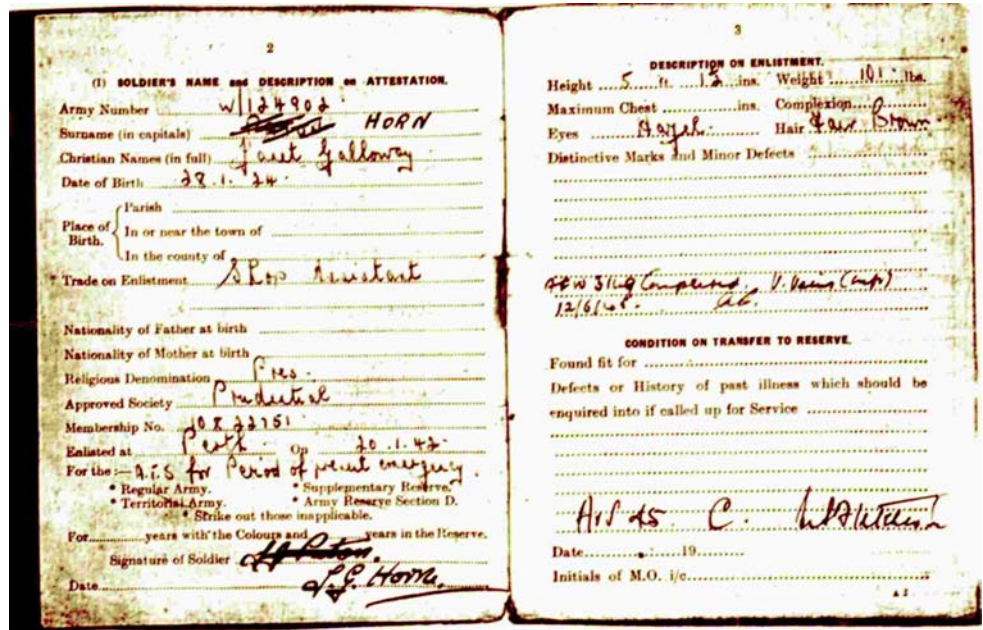 2
(I) SOLDIER'S NAME and DESCRIPTION on ATTESTATION.
Army Number W/124902
Surname (in capitals) HORN
Christian Names (in full) Janet Galloway
Date of Birth 28.1.24.
Place of Birth.
Parish
In or near the town of
In the county of
* Trade on Enlistment Shop Assistant
Nationality of Father at birth
Nationality of Mother at birth
Religious Denomination Pres.
Approved Society Prudential
Membership No. 10822751
Enlisted at Perth On 20.1.42.
For the :— A.T.S for Period of present emergency.
* Regular Army. * Supplementary Reserve.
* Territorial Army. * Army Reserve Section D.
* Strike out those inapplicable.
For years with the Colours and years in the Reserve.
Signature of Soldier J G Paton.
J.G. Horn.
Date
3
DESCRIPTION ON ENLISTMENT.
Height 5 ft. ins. Weight 101 lbs.
Maximum Chest ins. Complexion
Eyes Hazel. Hair Fair Brown
Distinctive Marks and Minor Defects
Completed
12/6/45.
CONDITION ON TRANSFER TO RESERVE.
Found fit for
Defects or History of past illness which should be
enquired into if called up for Service
45 C.
Date 19
Initials of M.O. i/c